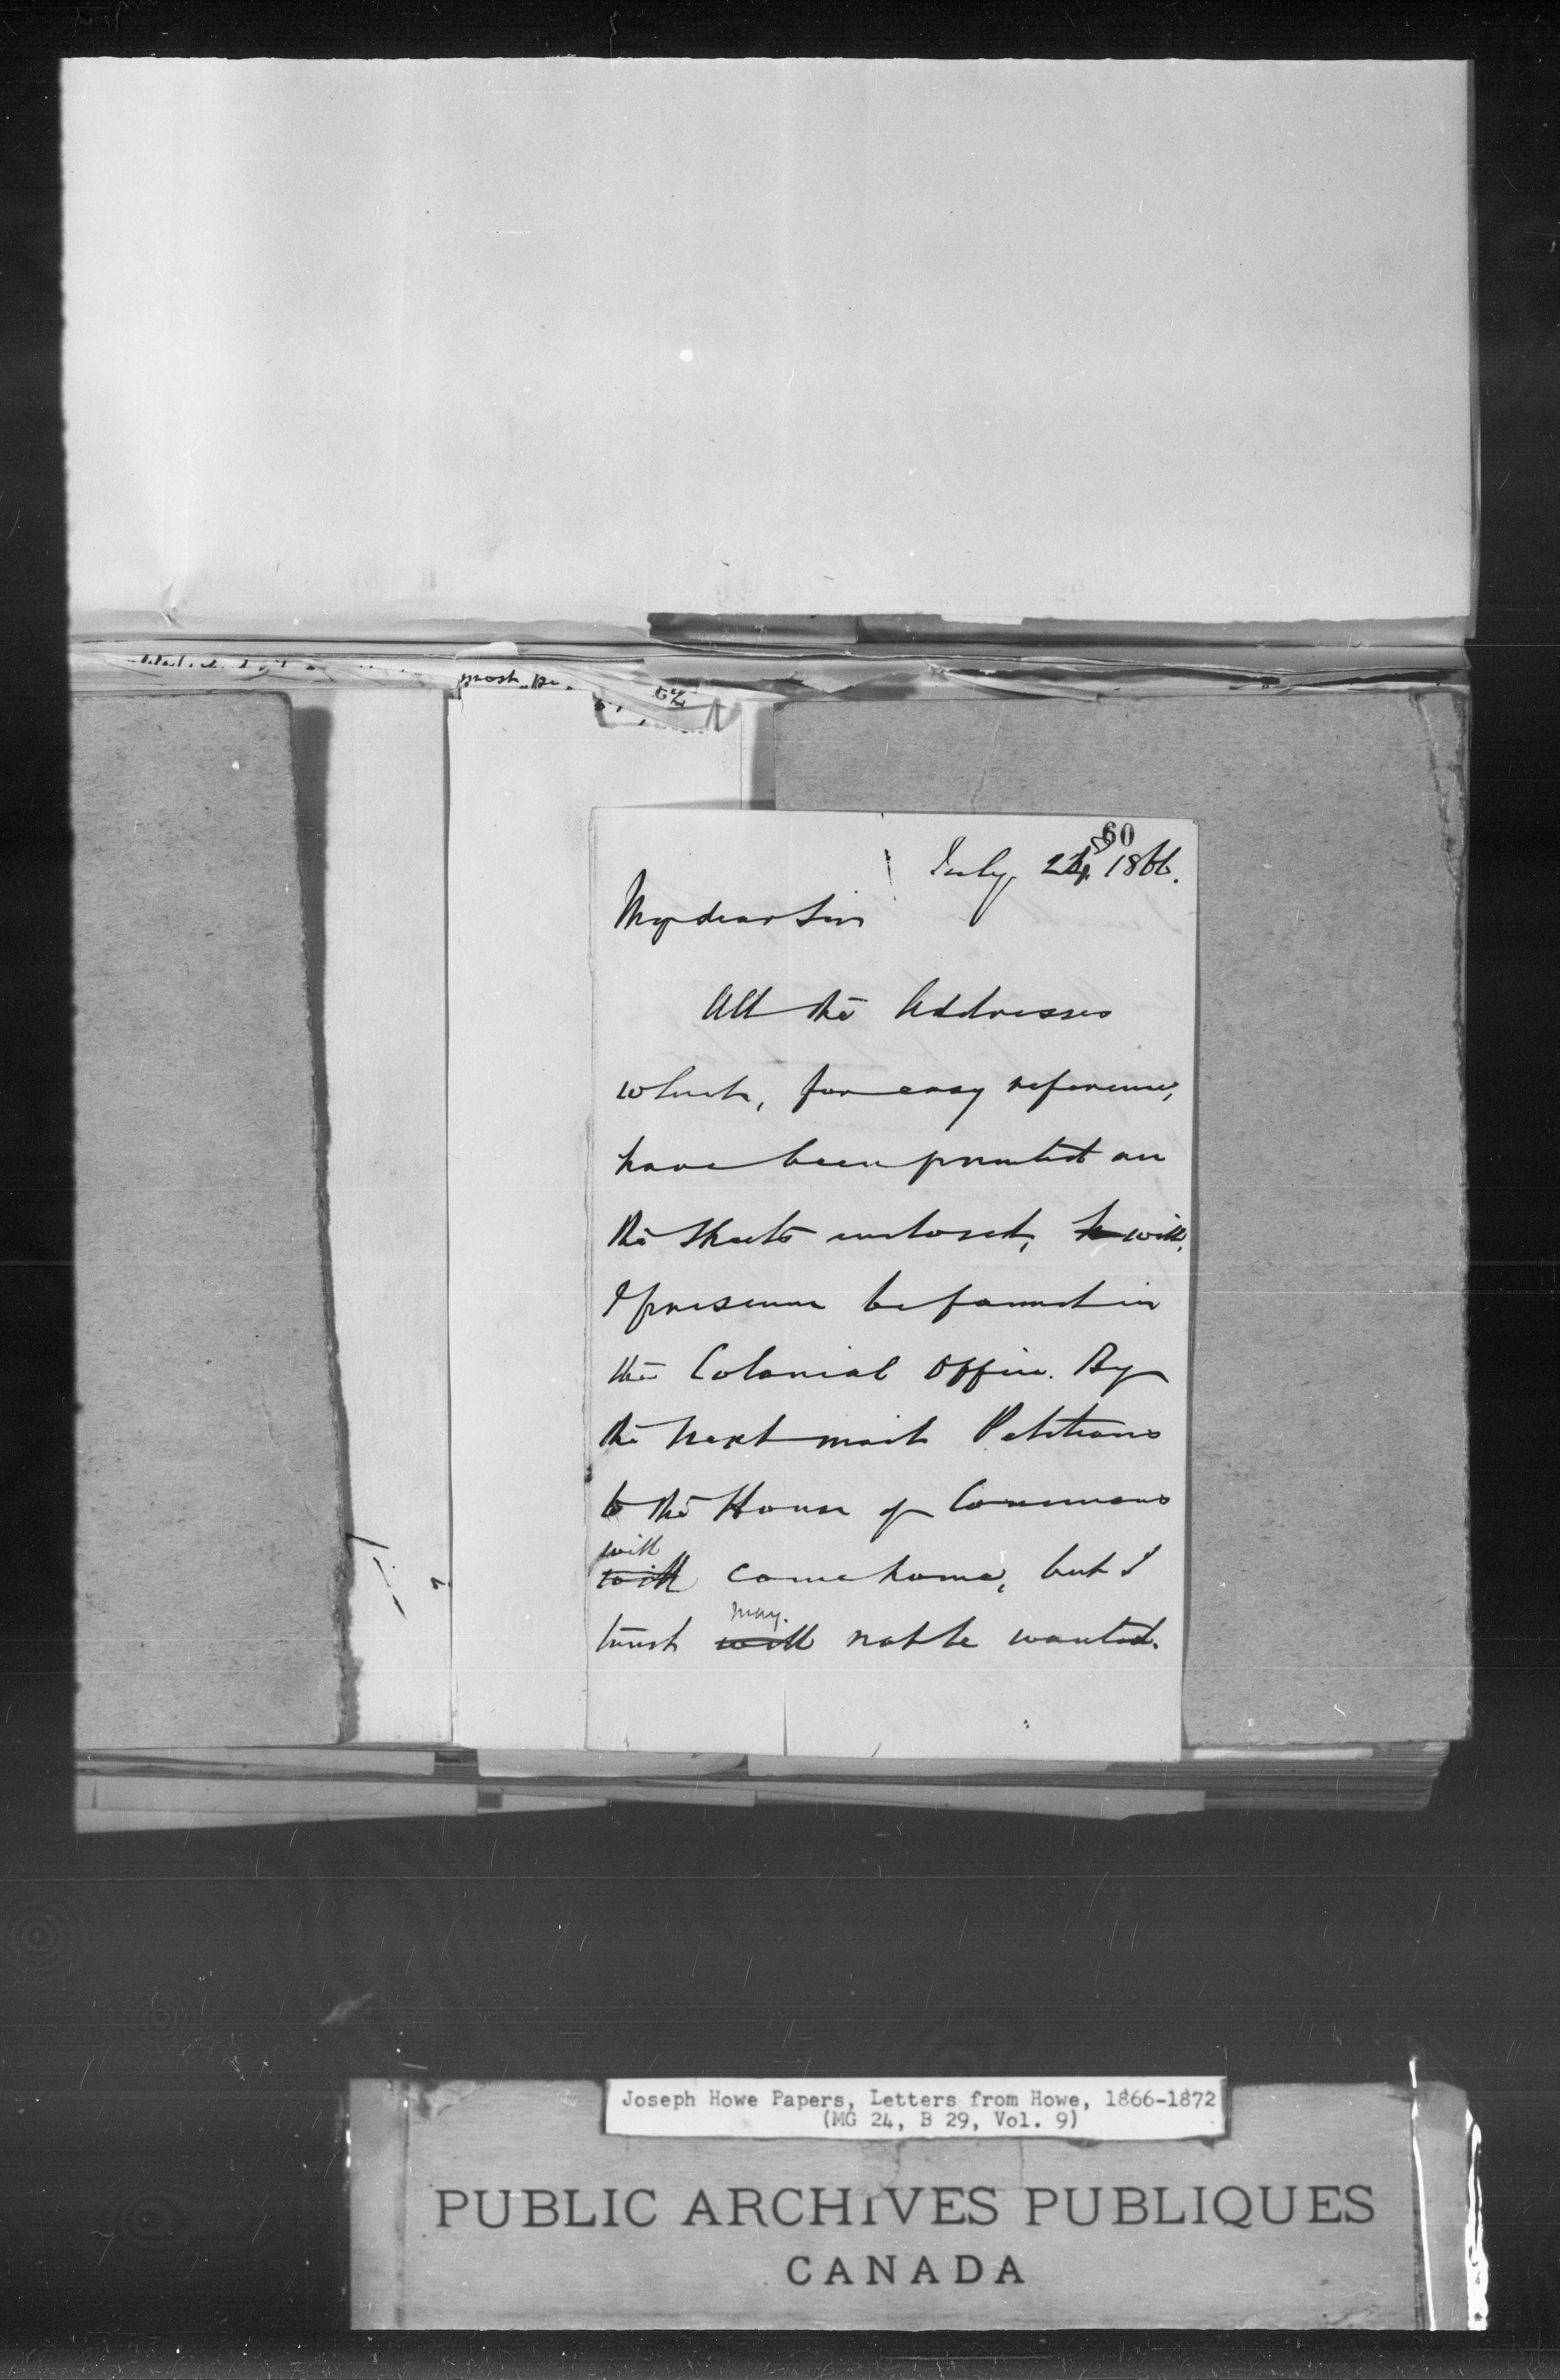 60
July 24, 1866.
My dear Sir
All the Addresses
which, for easy reference,
have been printed on
the sheets enclosed, will,
I presume be found in
the Colonial Office. By
the next mail Petitions
to the House of Commons
will
will come home, but I
may.
trust will not be wanted.
Joseph Howe Papers, Letters from Howe, 1866-1872
(MG 24, B 29, Vol. 9)
PUBLIC ARCHIVES PUBLIQUES
CANADA